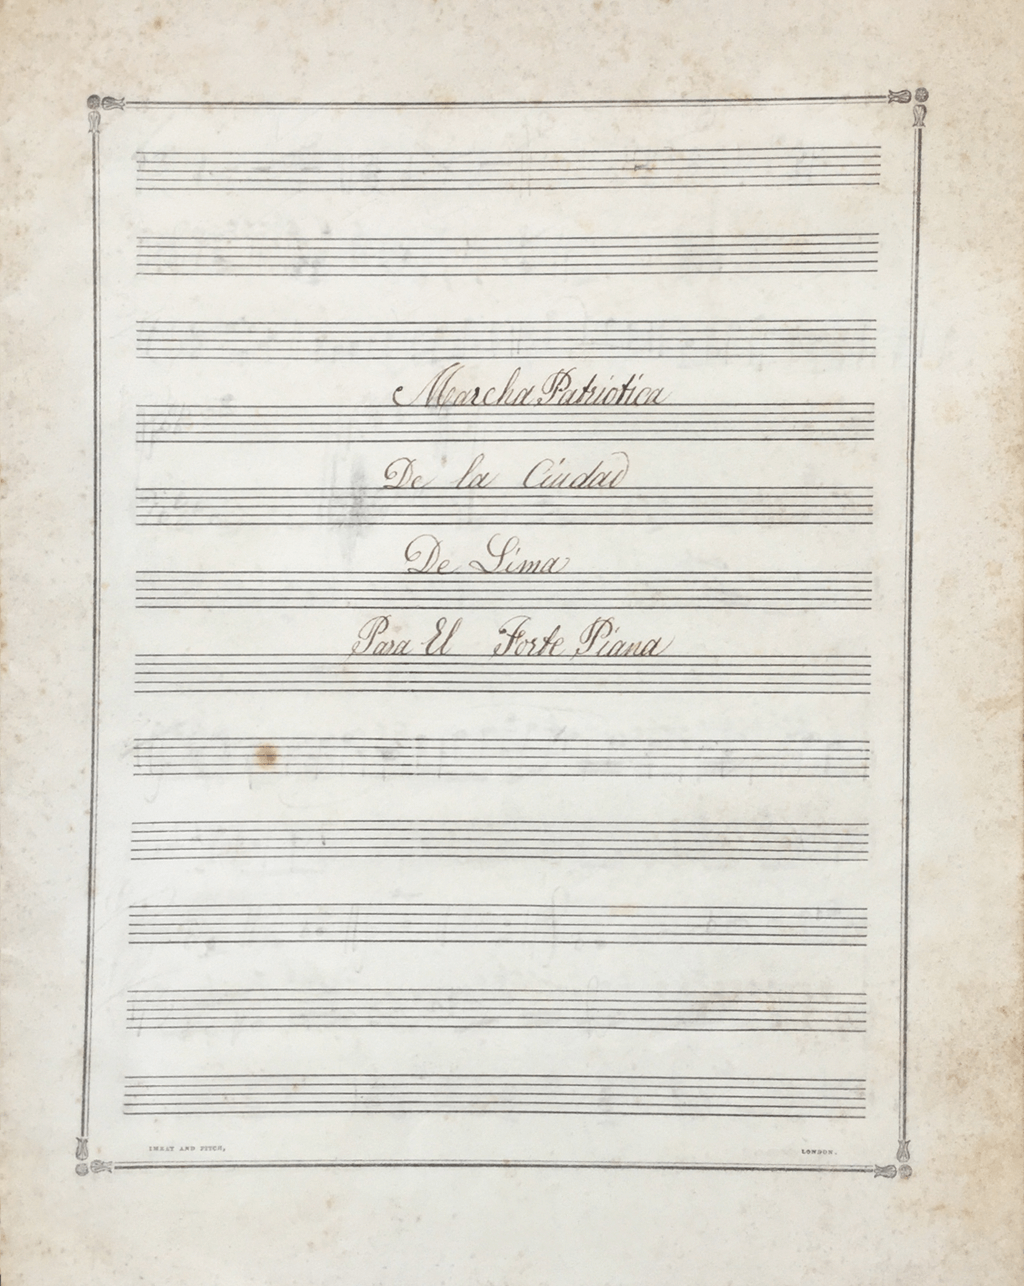 Marcha Patriotica
De la Ciudad
De Lima
Para El Forte Piana
IMRAY AND FITCH,
LONDON.